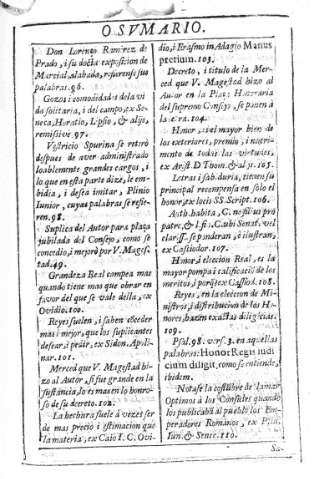 O SVMARIO.
Don Lorenço Ramirez de
Prado, i su docta exposicion de
Marcial, alabada, refierense sus
palabras. 96.
Gozos i comodidades de la vi
da solitaria, i del campo, ex Se-
neca, Horatio, Lipsio, & alijs,
remissivè 97.
Vestricio Spurina se retirò
despues de aver administrado
loablemente grandes cargos, i
lo que en esta parte dize, le em-
bidia, i desea imitar, Plinio
Iunior, cuyas palabras se refie-
ren. 98.
Suplica del Autor para plaça
jubilada del Consejo, como se
concedio, i mejorò por V. Mages-
tad. 49.
Grandeza Real campea mas
quando tiene mas que obrar en
favor del que se vale della, ex
Ovidio. 100.
Reyes suelen, i saben exceder
mas i mejor, que los suplicantes
desear, i pedir, ex Sidon. Apoli-
nar. 101.
Merced que V. Magestad hi-
zo al Autor, si fue grande en la
sustancia, lo es mas en lo honro-
so de su decreto. 102.
La hechura suele à vezes ser
de mas precio i estimacion que
la materia, ex Caio I. C. Ovi-
dio, i Erasmo in Adagio Manus
pretium. 103.
Decreto, i titulo de la Mer-
ced que V. Magestad hizo al
Autor en la Plaça Honoraria
del supremo Consejo, se ponen à
la letra. 104.
Honor, es el mayor bien de
los exteriores, premio, i nutri-
mento de todas las virtudes,
ex Arist. D. Thom. & alijs. 105.
Letras i sabiduria, tienen su
principal recompensa en solo el
honor, ex locis SS. Script. 106.
Auth. habita, C. ne filius pro
patre, & l. fin. C. ubi Senat. vel
clariss. se ponderan, è ilustran,
ex Casiodor. 107.
Honor, i eleccion Real, es la
mayor pompa i calificaciõ de los
meritos, i porque ex Cassiod. 108.
Reyes, en la eleccion de Mi-
nistros, i distribucion de los Ho-
nores, hazen exactas diligẽcias.
109.
Psal. 98. vers. 3. en aquellas
palabras: Honor Regis iudi
cium diligit, como se entiende,
ibidem.
Notase la costũbre de llamar
Optimos à los Consules quando
los publicabã al pueblo los Em-
peradores Romanos, ex Plin.
Iun. & Senec. 110.
Su-